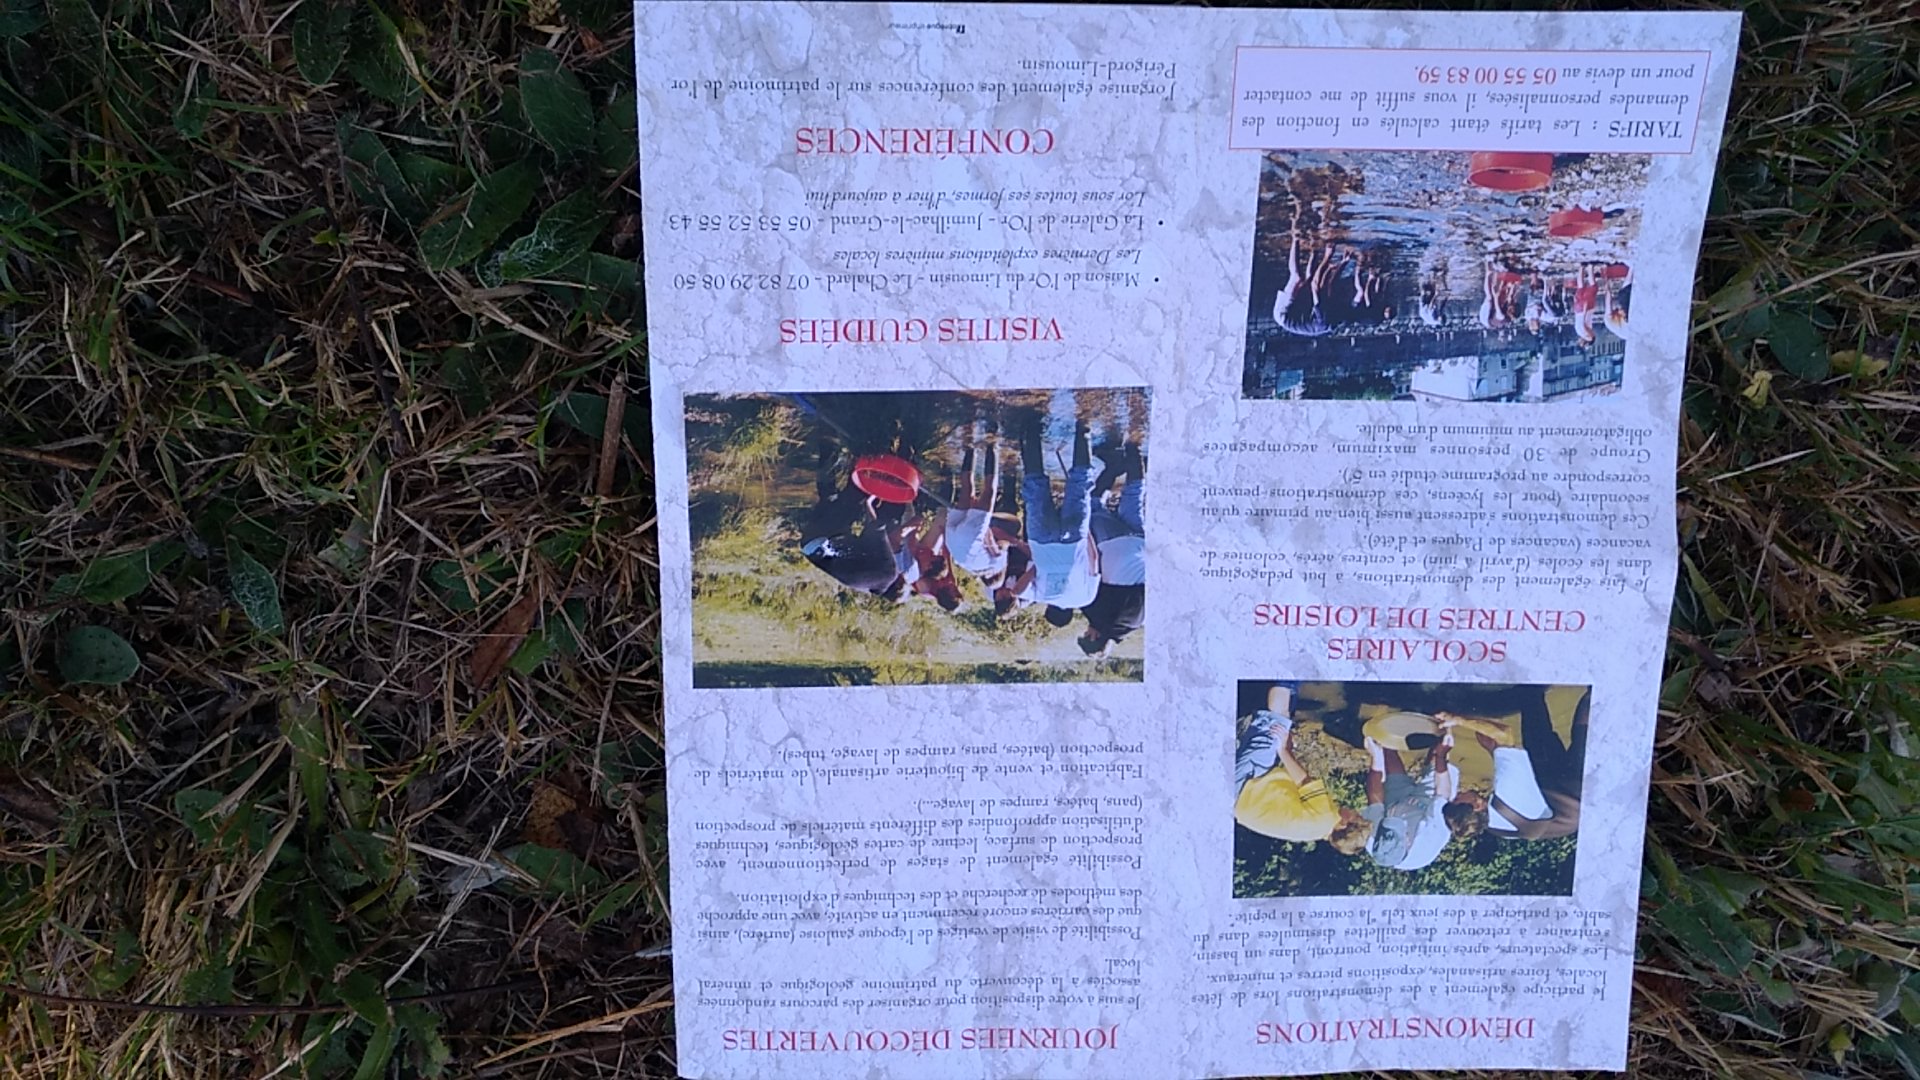 DÉMONSTRATIONS
Je participe également à des démonstrations lors de fêtes
locales, foires artisanales, expositions pierres et minéraux.
Les spectateurs, après initiation, pourront, dans un bassin,
s'entraîner à retrouver des paillettes dissimulées dans du
sable, et participer à des jeux tels "la course à la pépite".
SCOLAIRES
CENTRES DE LOISIRS
Je fais également des démonstrations, à but pédagogique,
dans les écoles (d'avril à juin) et centres aérés, colonies de
vacances (vacances de Pâques et d'été).
Ces démonstrations s'adressent aussi bien au primaire qu'au
secondaire (pour les lycéens, ces démonstrations peuvent
correspondre au programme étudié en 5e).
Groupe de 30 personnes maximum, accompagnées
obligatoirement au minimum d'un adulte.
TARIFS : Les tarifs étant calculés en fonction des
demandes personnalisées, il vous suffit de me contacter
pour un devis au 05 55 00 83 59.
JOURNÉES DÉCOUVERTES
Je suis à votre disposition pour organiser des parcours randonnées
associés à la découverte du patrimoine géologique et minéral
local.
Possibilité de visite de vestiges de l'époque gauloise (aurière), ainsi
que des carrières encore récemment en activité, avec une approche
des méthodes de recherche et des techniques d'exploitation.
Possibilité également de stages de perfectionnement, avec
prospection de surface, lecture de cartes géologiques, techniques
d'utilisation approfondies des différents matériels de prospection
(pans, batées, rampes de lavage...).
Fabrication et vente de bijouterie artisanale, de matériels de
prospection (batées, pans, rampes de lavage, tubes).
VISITES GUIDÉES
• Maison de l'Or du Limousin - Le Chalard - 07 82 29 08 50
Les Dernières exploitations minières locales
• La Galerie de l'Or - Jumilhac-le-Grand - 05 53 52 55 43
L'or sous toutes ses formes, d'hier à aujourd'hui
CONFÉRENCES
J'organise également des conférences sur le patrimoine de l'or
Périgord-Limousin.
imprimeur